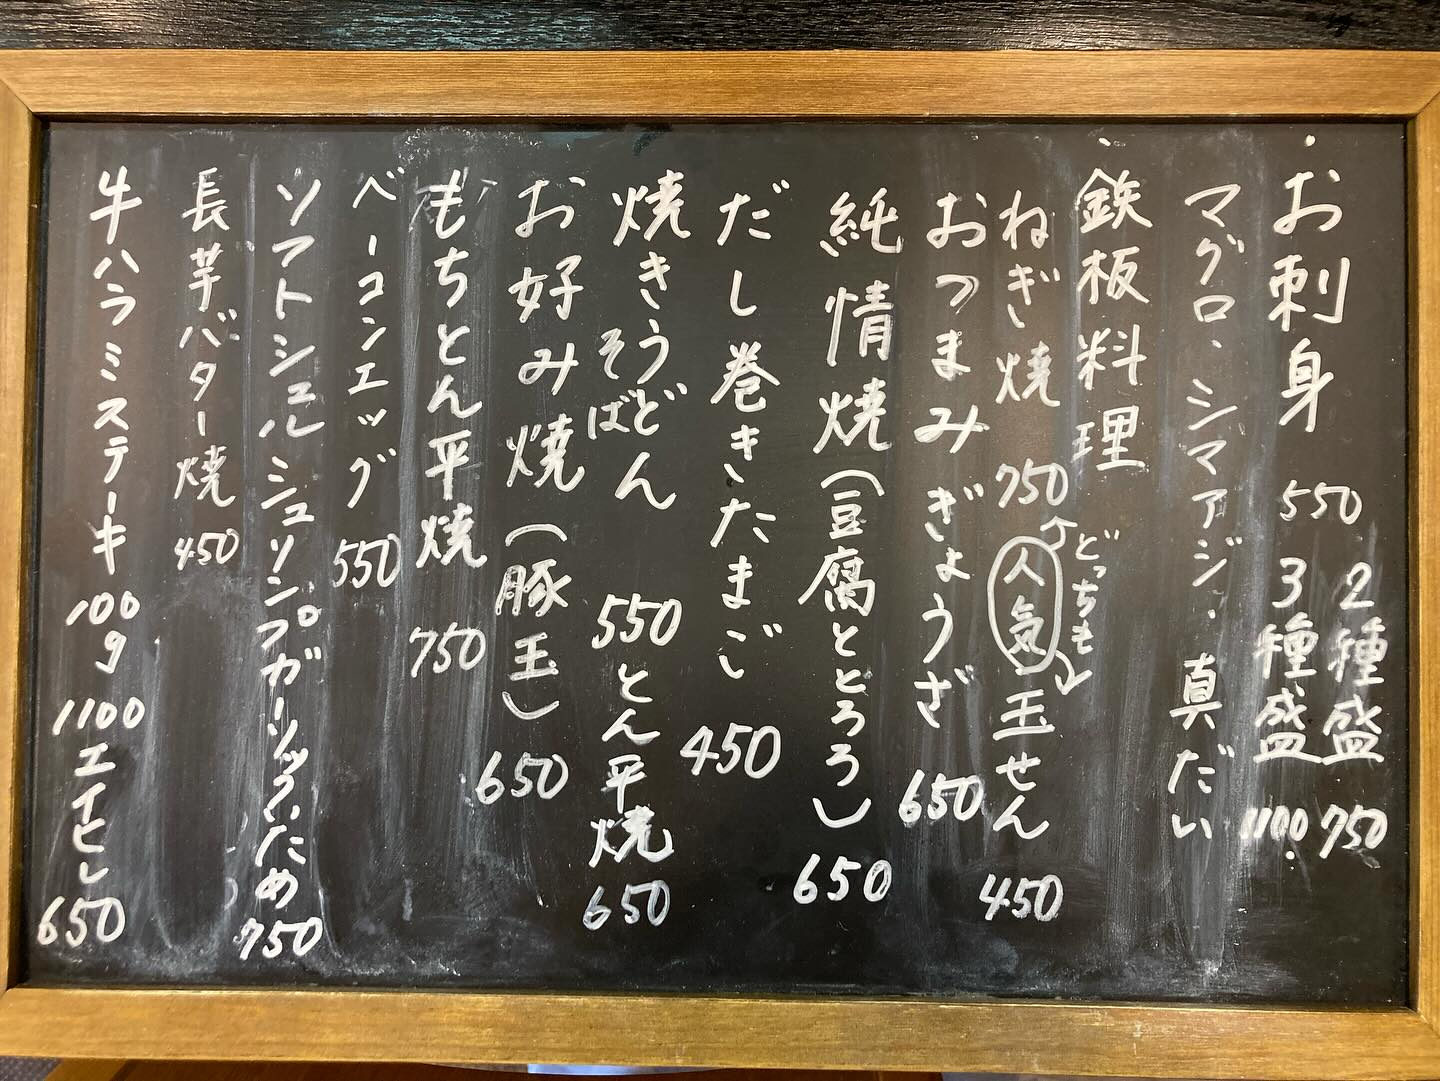 ・お刺身 550 2種盛 750
3種盛 1100.
マグロ・シマアジ・真だい
・鉄板料理
ねぎ焼 750 人気 玉せん 450
どっちも
おつまみぎょうざ 650
純情焼(豆腐ととろろ) 650
だし巻きたまご 450
焼きうどん 550 とん平焼 650
そば
お好み焼(豚玉) 650
もちとん平焼 750
ベーコンエッグ 550
ソフトシェルシュリンプガーリックいため 750
長芋バター焼 450
牛ハラミステーキ 100g 1100 エイヒレ 650